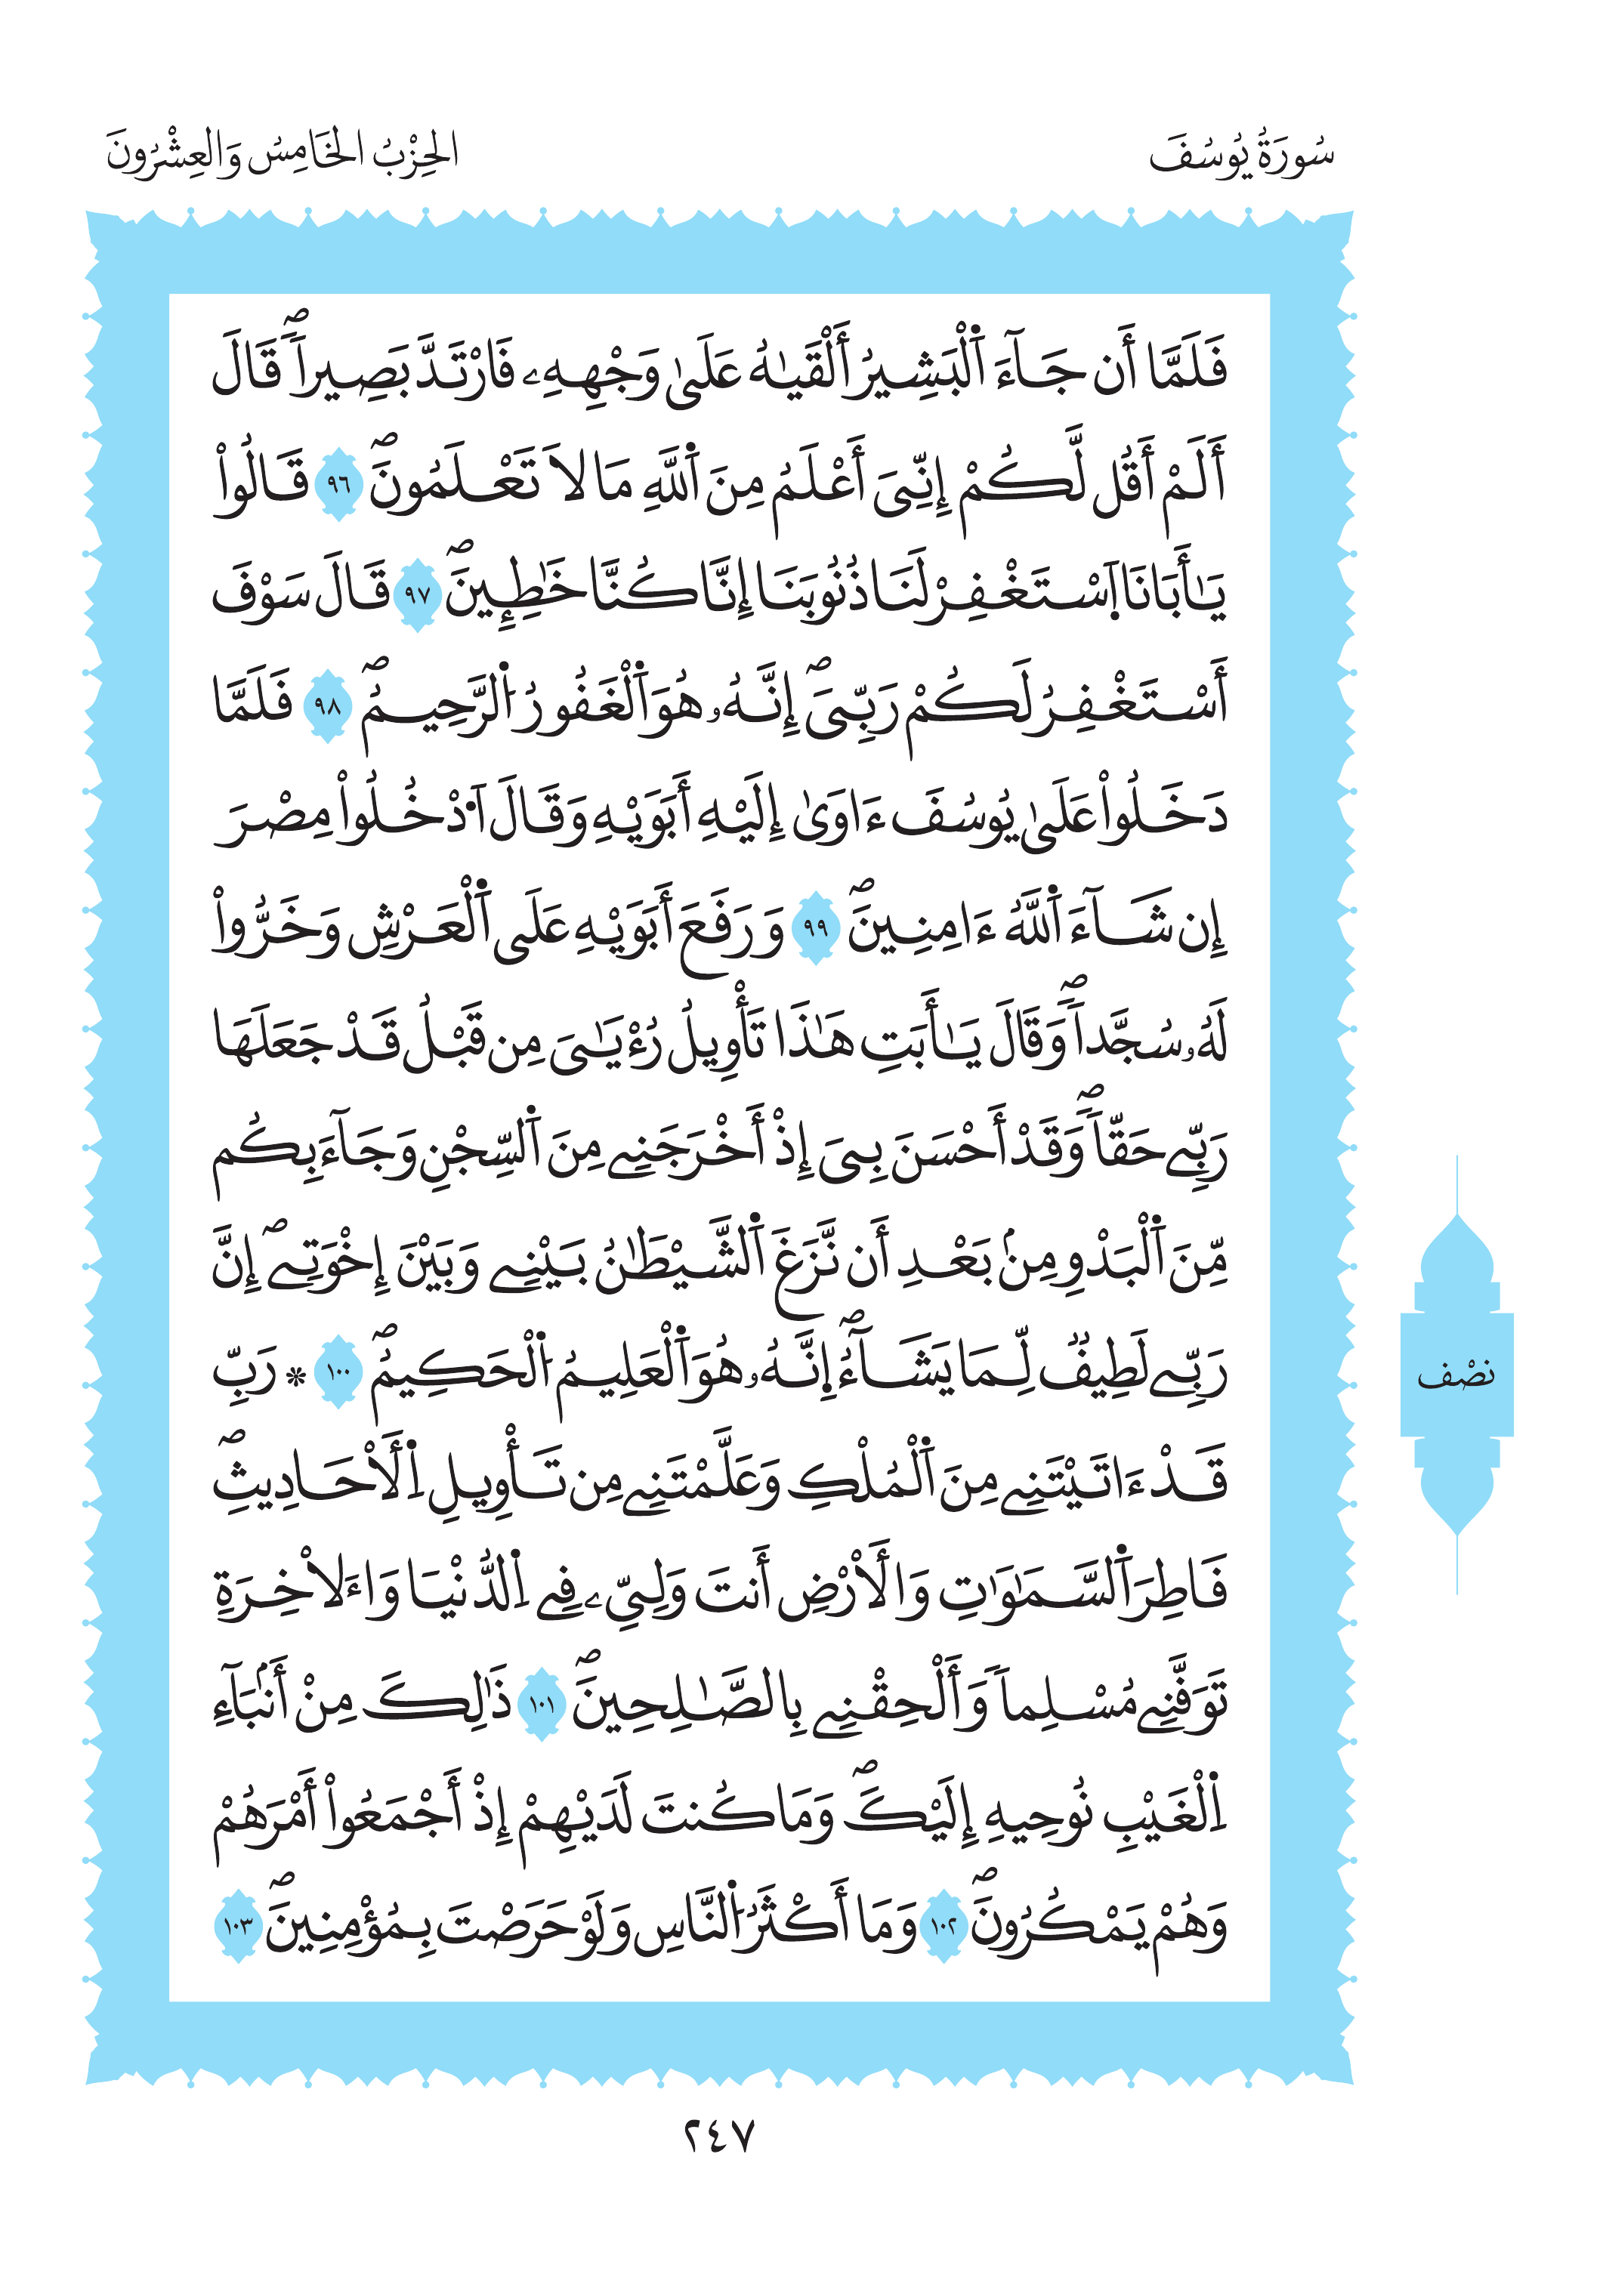 سُورَةُ يُوسُفَ
الحِزْبُ الخَامِسُ وَالعِشْرُونَ
فَلَمَّا أَن جَآءَ اَ۬لْبَشِيرُ أَلْقَيٰهُ عَلَىٰ وَجْهِهِۦ فَارْتَدَّ بَصِيراٗۖ قَالَ
أَلَمْ أَقُل لَّكُمْ إِنِّىَ أَعْلَمُ مِنَ اَ۬للَّهِ مَا لَا تَعْلَمُونَۖ ٩٦ قَالُواْ
يَٰأَبَانَا اَ۪سْتَغْفِرْ لَنَا ذُنُوبَنَا إِنَّا كُنَّا خَٰطِـِٕينَۖ ٩٧ قَالَ سَوْفَ
أَسْتَغْفِرُ لَكُمْ رَبِّىَۖ إِنَّهُۥ هُوَ اَ۬لْغَفُورُ اُ۬لرَّحِيمُۖ ٩٨ فَلَمَّا
دَخَلُواْ عَلَىٰ يُوسُفَ ءَاوَىٰ إِلَيْهِ أَبَوَيْهِ وَقَالَ اَ۟دْخُلُواْ مِصْرَ
إِن شَآءَ اَ۬للَّهُ ءَامِنِينَۖ ٩٩ وَرَفَعَ أَبَوَيْهِ عَلَى اَ۬لْعَرْشِ وَخَرُّواْ
لَهُۥ سُجَّداٗۖ وَقَالَ يَٰأَبَتِ هَٰذَا تَأْوِيلُ رُءْيَٰىَ مِن قَبْلُ قَدْ جَعَلَهَا
رَبِّے حَقّاٗۖ وَقَدْ أَحْسَنَ بِىَ إِذْ أَخْرَجَنِے مِنَ اَ۬لسِّجْنِ وَجَآءَ بِكُم
مِّنَ اَ۬لْبَدْوِ مِنۢ بَعْدِ أَن نَّزَغَ اَ۬لشَّيْطَٰنُ بَيْنِے وَبَيْنَ إِخْوَتِےۖ إِنَّ
رَبِّے لَطِيفٞ لِّمَا يَشَآءُۖ اِ۪نَّهُۥ هُوَ اَ۬لْعَلِيمُ اُ۬لْحَكِيمُۖ ١٠٠ * رَبِّ
قَدْ ءَاتَيْتَنِے مِنَ اَ۬لْمُلْكِ وَعَلَّمْتَنِے مِن تَأْوِيلِ اِ۬لْأَحَادِيثِۖ
فَاطِرَ اَ۬لسَّمَٰوَٰتِ وَالْأَرْضِ أَنتَ وَلِيِّۦ فِے اِ۬لدُّنْيَا وَاءَلَاخِرَةِ
تَوَفَّنِے مُسْلِماٗ وَأَلْحِقْنِے بِالصَّٰلِحِينَۖ ١٠١ ذَٰلِكَ مِنْ أَنۢبَآءِ
اِ۬لْغَيْبِ نُوحِيهِ إِلَيْكَۖ وَمَا كُنتَ لَدَيْهِمْ إِذْ أَجْمَعُواْ أَمْرَهُمْ
وَهُمْ يَمْكُرُونَۖ ١٠٢ وَمَا أَكْثَرُ اُ۬لنَّاسِ وَلَوْ حَرَصْتَ بِمُؤْمِنِينَۖ ١٠٣
نصْف
٢٤٧